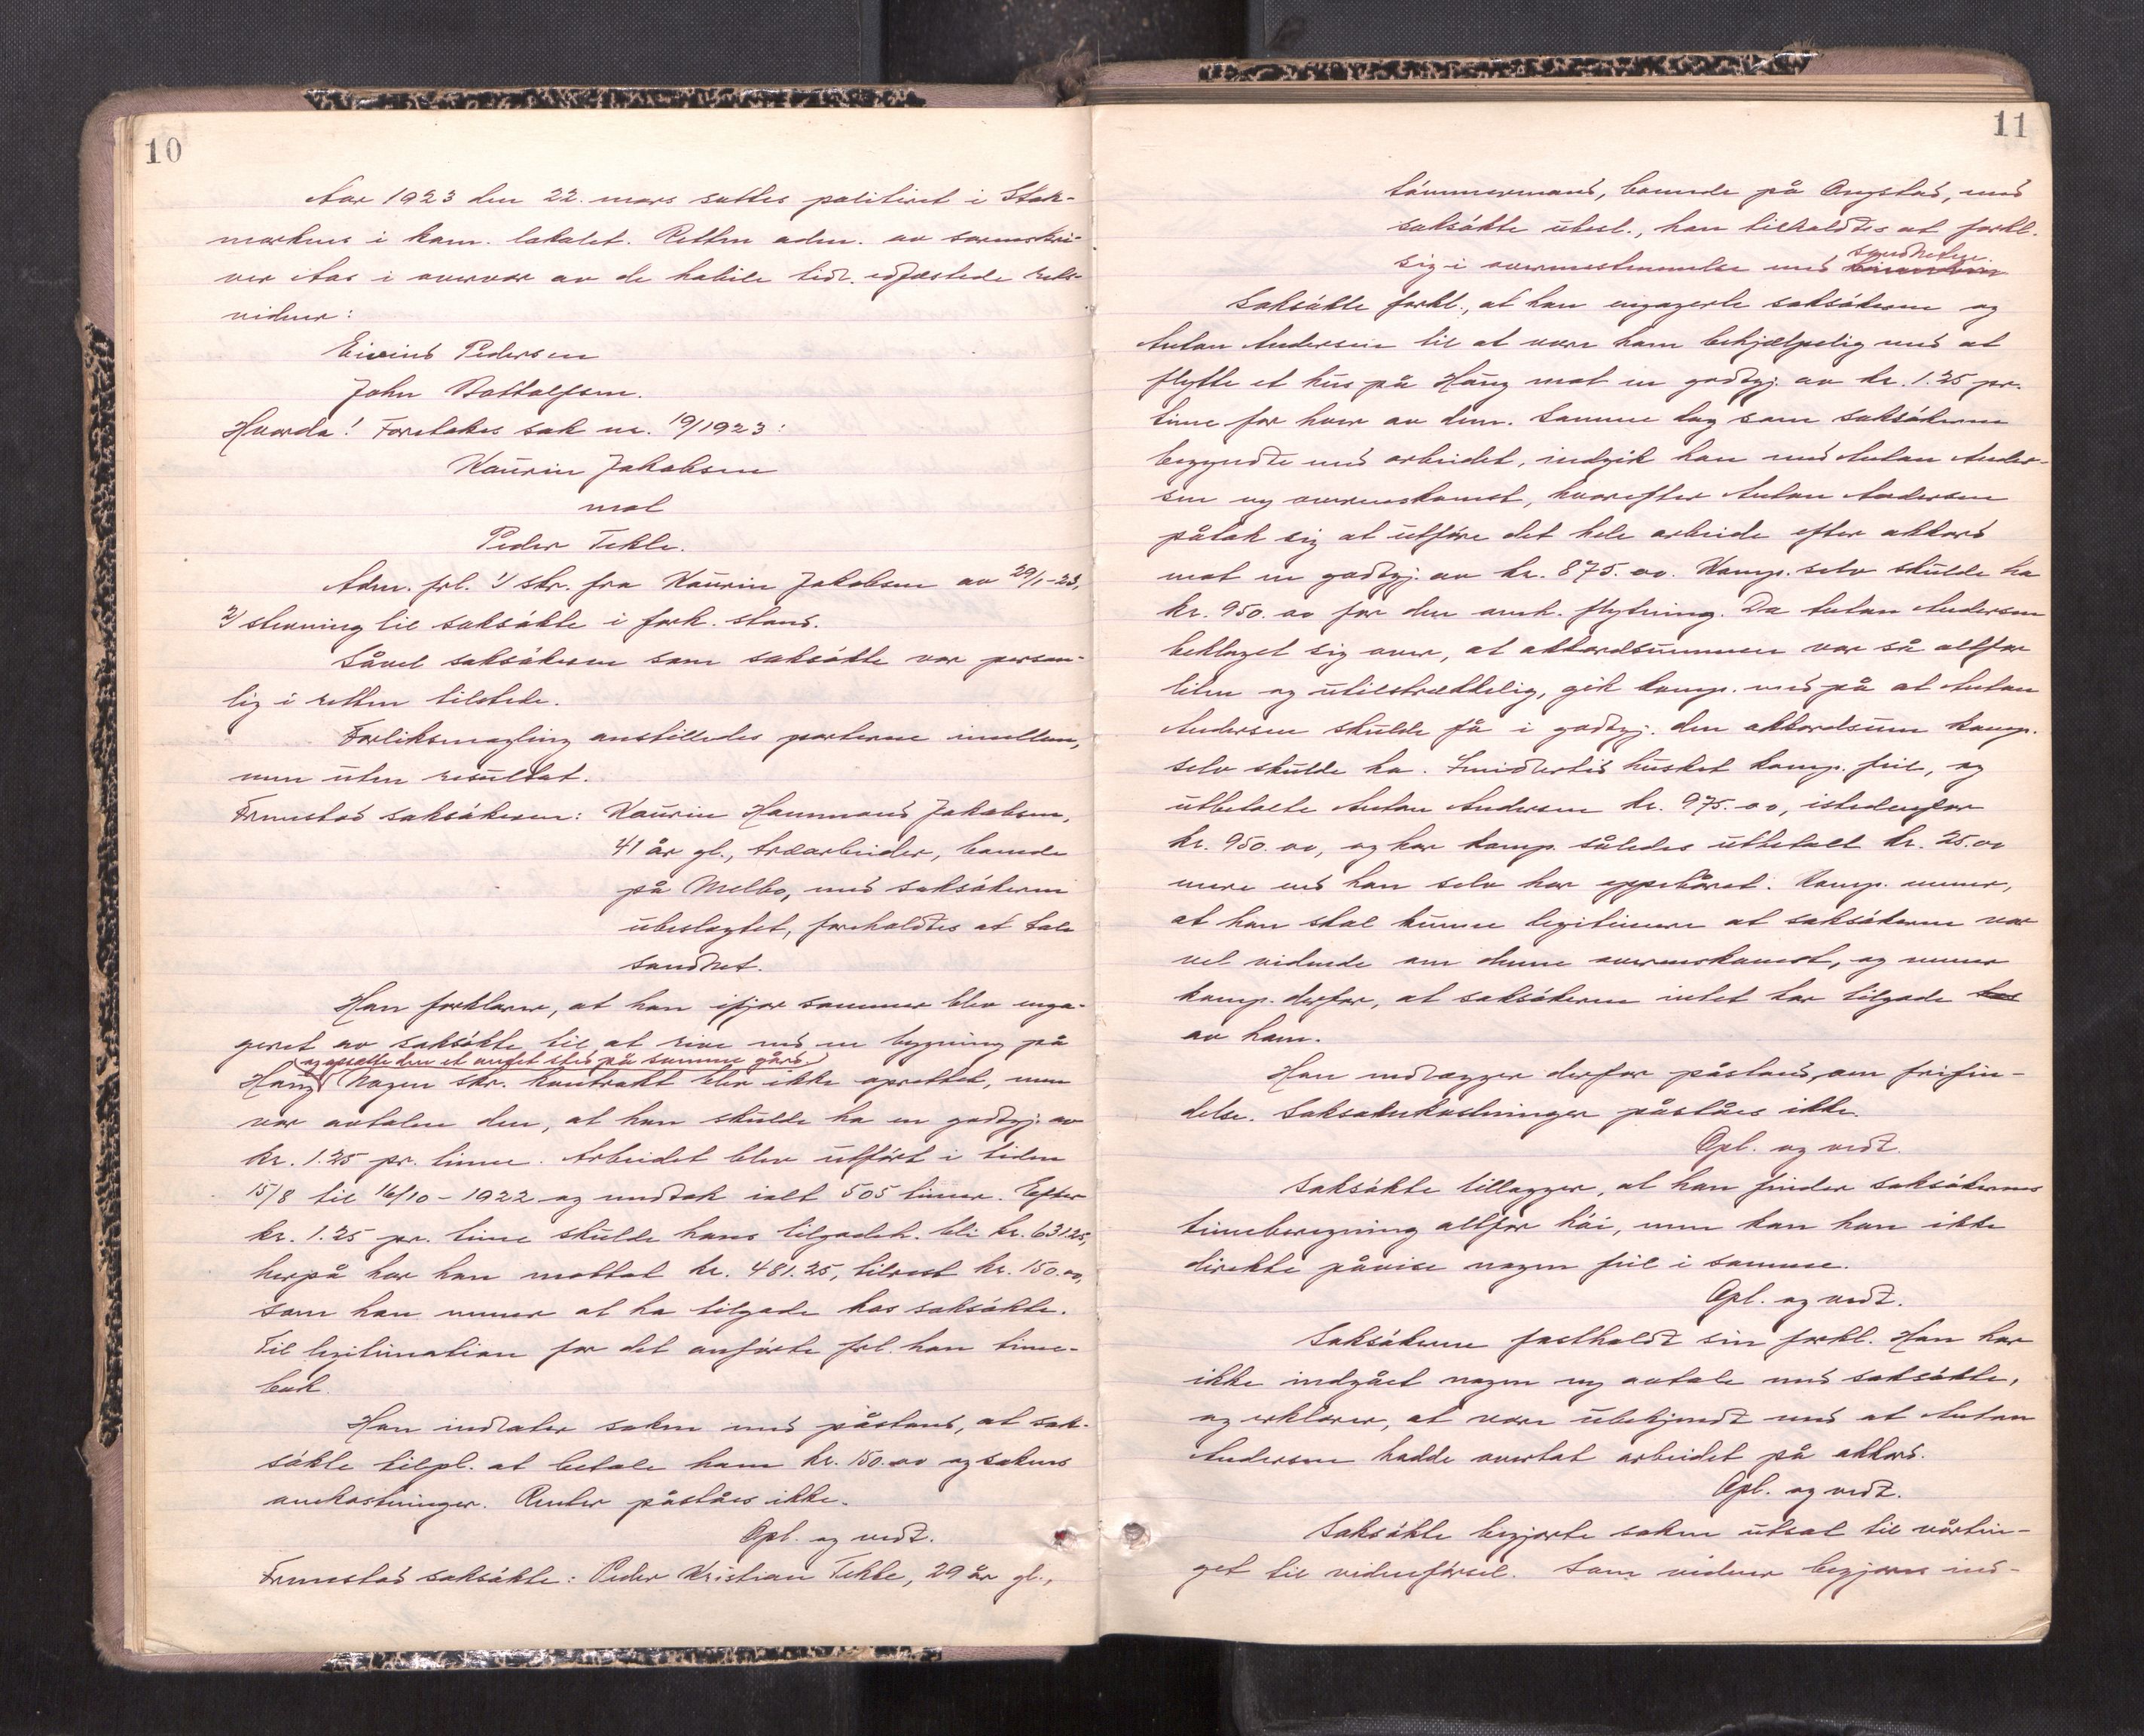 10
Aar 1923 den 22. mars sattes politiret i Stok-
marknes i kom. lokalet. Retten adm. av sorenskri-
ver Aas i overvær av de habile tidl. edfæstede rets-
vidner:
Eivind Pedersen
John Bottolfsen.
Hvorda! Foretokes sak nr. 10/1923:
Kaurin Jakobsen
mot
Peder Tekle.
Adm. frl. 1/ skr. fra Kaurin Jakobsen av 29/1-23,
2/ stevning til saksøkte i fork. stand.
Såvel saksøkeren som saksøkte var person-
lig i retten tilstede.
Forliksmægling anstilledes parterne imellem,
men uten resultat.
Fremstod saksøkeren: Kaurin Hammond Jakobsen,
41 år gl., træarbeider, boende
på Melbo, med saksøkeren
ubeslegtet, foreholdtes at tale
sandhet.
Han forklarer, at han ifjor sommer blev enga-
geret av saksøkte til at rive ned en bygning på
og opsætte den et andet sted på samme gård
Haug. Nogen skr. kontrakt blev ikke oprettet, men
var avtalen den, at han skulde ha en godtgj. av
kr. 1.25 pr. time. Arbeidet blev utført i tiden
15/8 til 16/10 - 1922 og medtok ialt 505 timer. Efter
kr. 1.25 pr. time skulde hans tilgodeh. bli kr. 631.25,
herpå har han mottat kr. 481.25, tilrest kr. 150.00,
som han mener at ha tilgode hos saksøkte.
Til legitimation for det anførte frl. han time-
bok.
Han indlater saken med påstand, at sak-
søkte tilpl. at betale ham kr. 150.00 og sakens
omkostninger. Renter påståes ikke.
Opl. og vedt.
Fremstod saksøkte: Peder Kristian Tekle, 29 år gl.,
11
tømmermand, boende på Ongstad, med
saksøkte ubesl., han tilholdtes at forkl.
sandheten.
sig i overensstemmelse med
Saksøkte forkl., at han engagerte saksøkeren og
Anton Andersen til at være ham behjælpelig med at
flytte et hus på Haug mot en godtgj. av kr. 1.25 pr.
time for hver av dem. Samme dag som saksøkeren
begyndte med arbeidet, indgik han med Anton Ander-
sen ny overenskomst, hvorefter Anton Andersen
påtok sig at utføre det hele arbeide efter akkord
mot en godtgj. av kr. 875.00. Komp. selv skulde ha
kr. 950.00 for den omh. flytning. Da Anton Andersen
beklaget sig over, at akkordsummen var så altfor
liten og utilstrækkelig, gik komp. med på at Anton
Andersen skulde få i godtgj. den akkordsum komp.
selv skulde ha. Imidlertid husket komp. feil, og
utbetalte Anton Andersen kr. 975.00, istedenfor
kr. 950.00, og har komp. således utbetalt kr. 25.00
mere end han selv har oppebåret. Komp. mener,
at han skal kunne legitimere at saksøkeren var
vel vidende om denne overenskomst, og mener
komp. derfor, at saksøkeren intet har tilgode hos
av ham.
Han nedlægger derfor påstand, om frifin-
delse. Saksomkostninger påståes ikke.
Opl. og vedt.
Saksøkte tillægger, at han finder saksøkerens
timeberegning altfor høi, men kan han ikke
direkte påvise nogen feil i samme.
Opl. og vedt.
Saksøkeren fastholdt sin forkl. Han har
ikke indgået nogen ny avtale med saksøkte,
og erklærer, at være ubekjendt med at Anton
Andersen hadde overtat arbeidet på akkord.
Opl. og vedt.
Saksøkte begjærte saken utsat til vårtin-
get til vidneførsel. Som vidner begjæres ind-